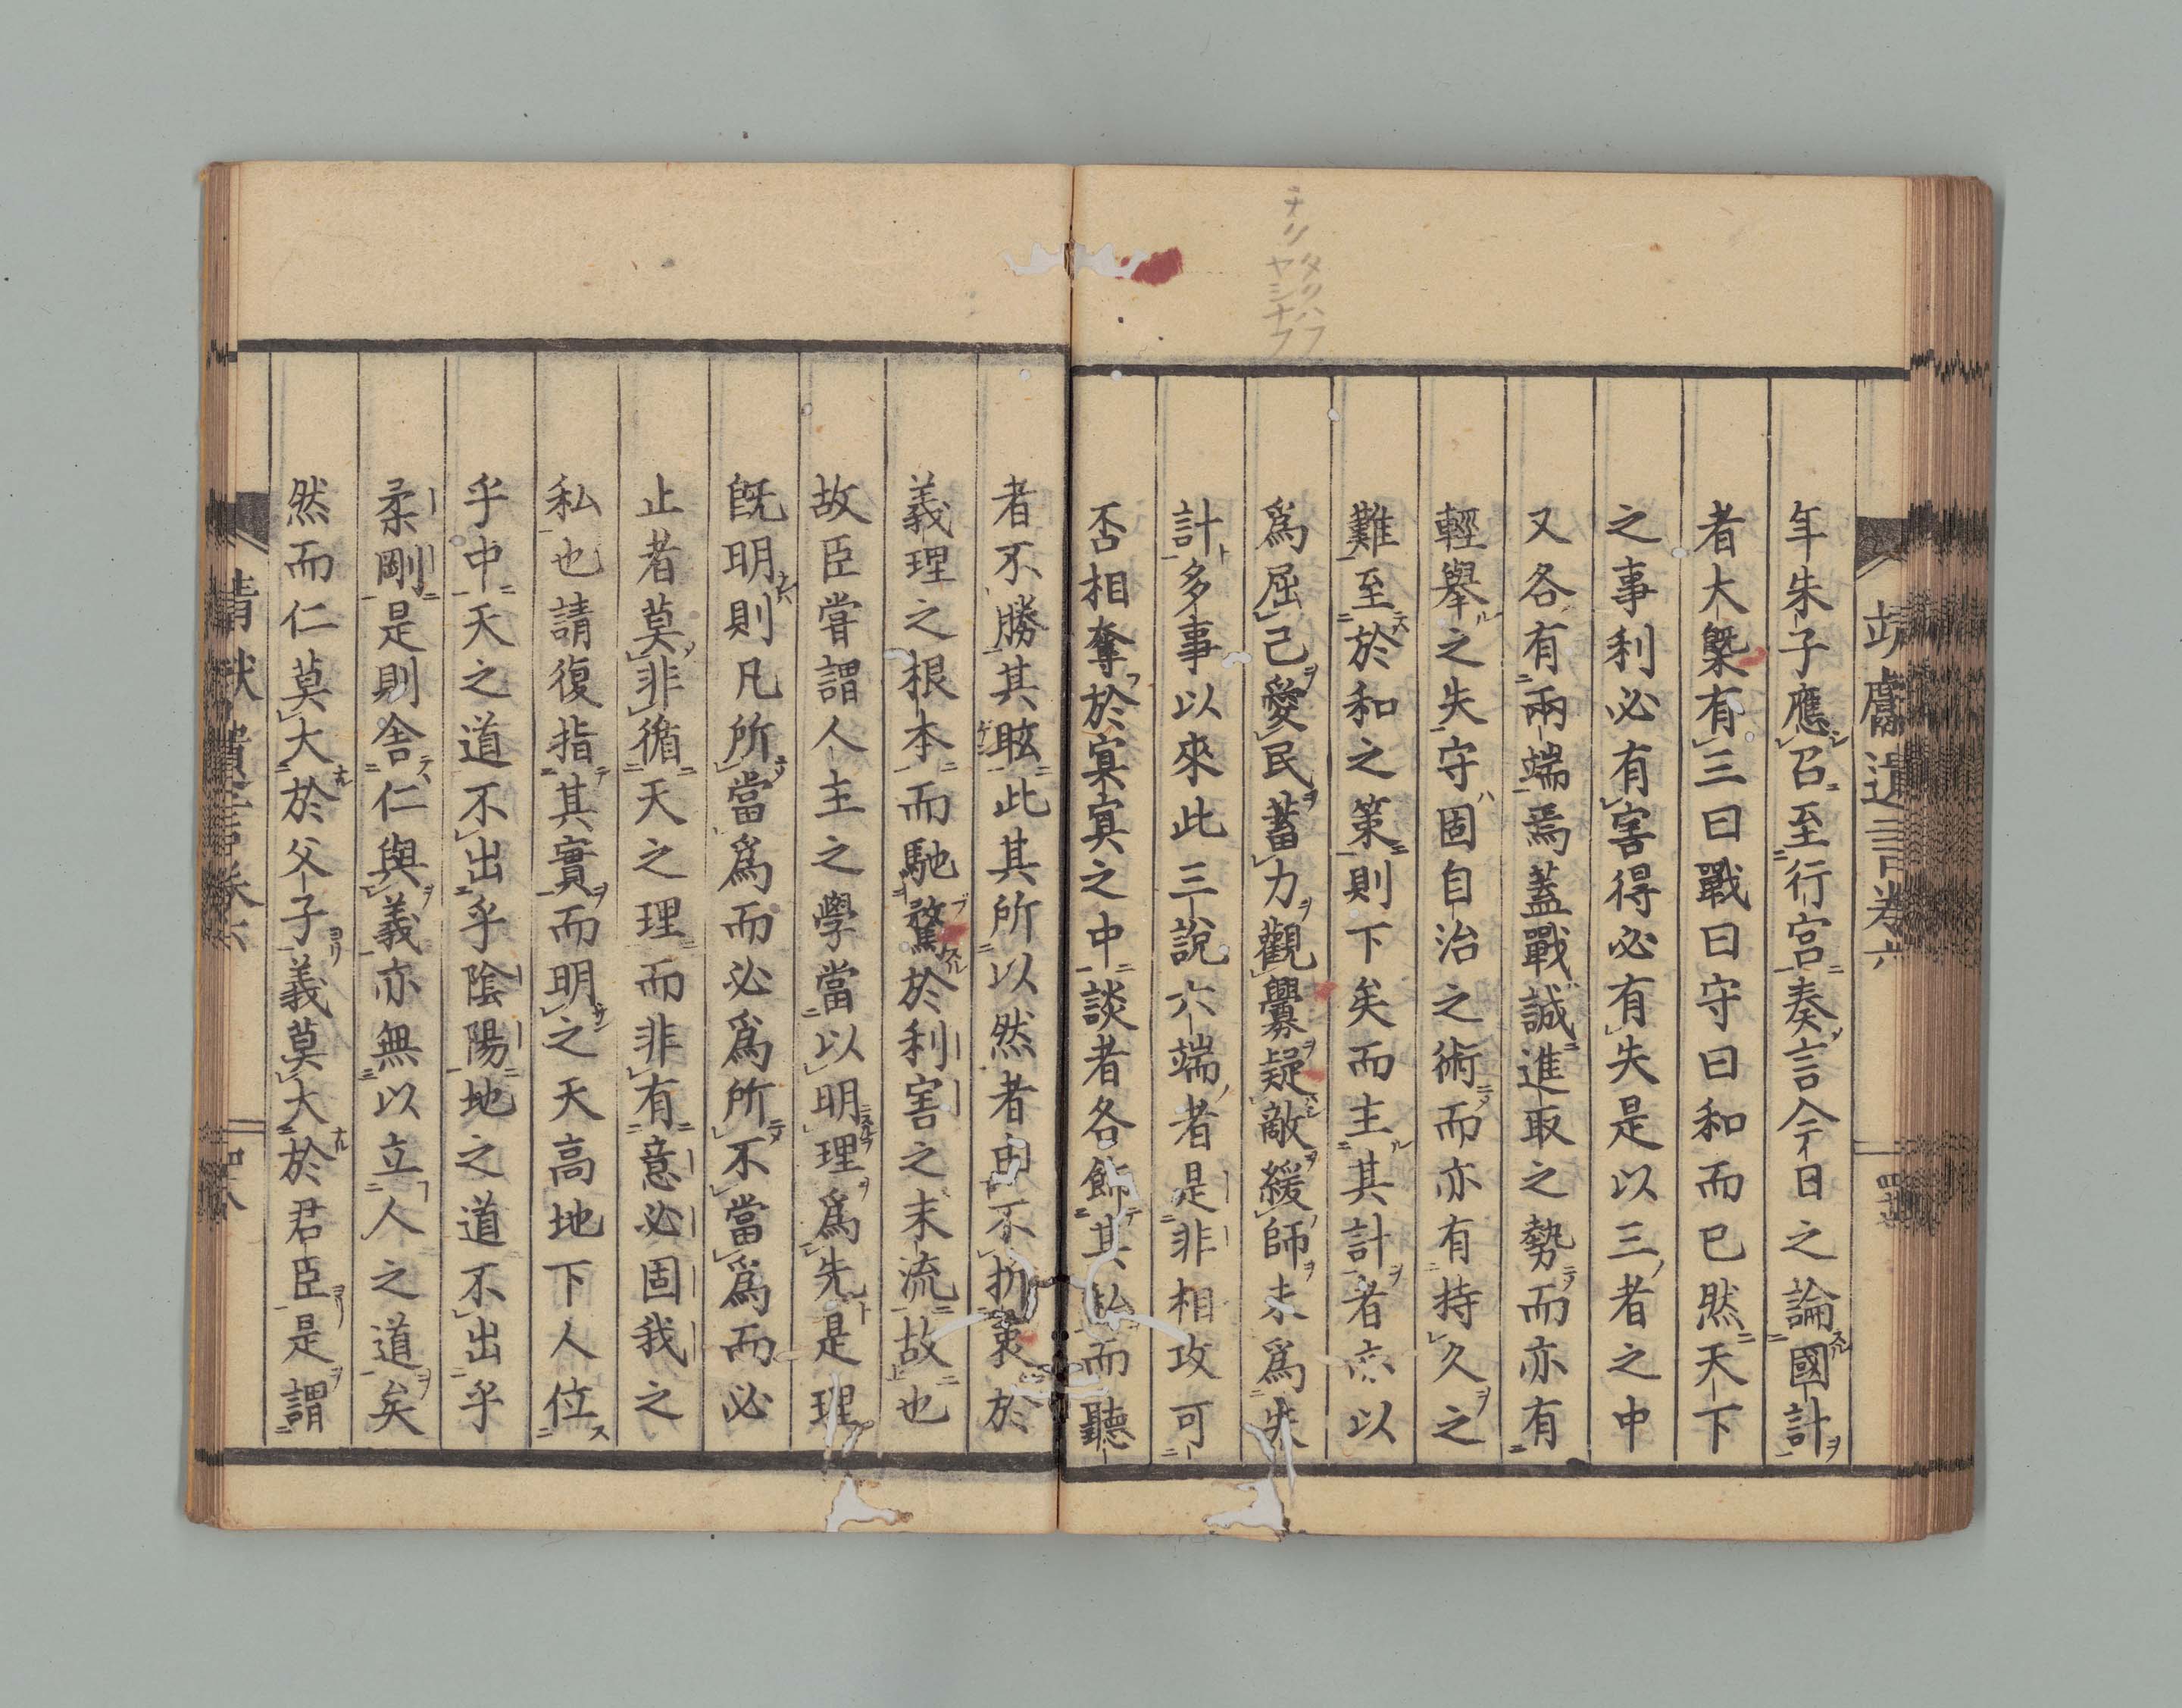 靖獻遺言卷六
年朱子應召至行宮奏言今日之論國計
者大槩有三曰戰曰守曰和而已然天下
之事利必有害得必有失是以三者之中
又各有兩端焉蓋戰誠進取之勢而亦有
輕舉之失守固自治之術而亦有持久之
難至於和之策則下矣而主其計者亦以
爲屈己愛民蓄力觀釁疑敵緩師未爲失
計多事以來此三說六端者是非相攻可
否相奪於冥冥之中談者各飾其私而聽
者不勝其眩此其所以然者由不折衷於
義理之根本而馳騖於利害之末流故也
故臣嘗謂人主之學當以明理爲先是理
既明則凡所當爲而必爲所不當爲而必
止者莫非循天之理而非有意必固我之
私也請復指其實而明之天高地下人位
乎中天之道不出乎陰陽地之道不出乎
柔剛是則舍仁與義亦無以立人之道矣
然而仁莫大於父子義莫大於君臣是謂
靖獻遺言卷六